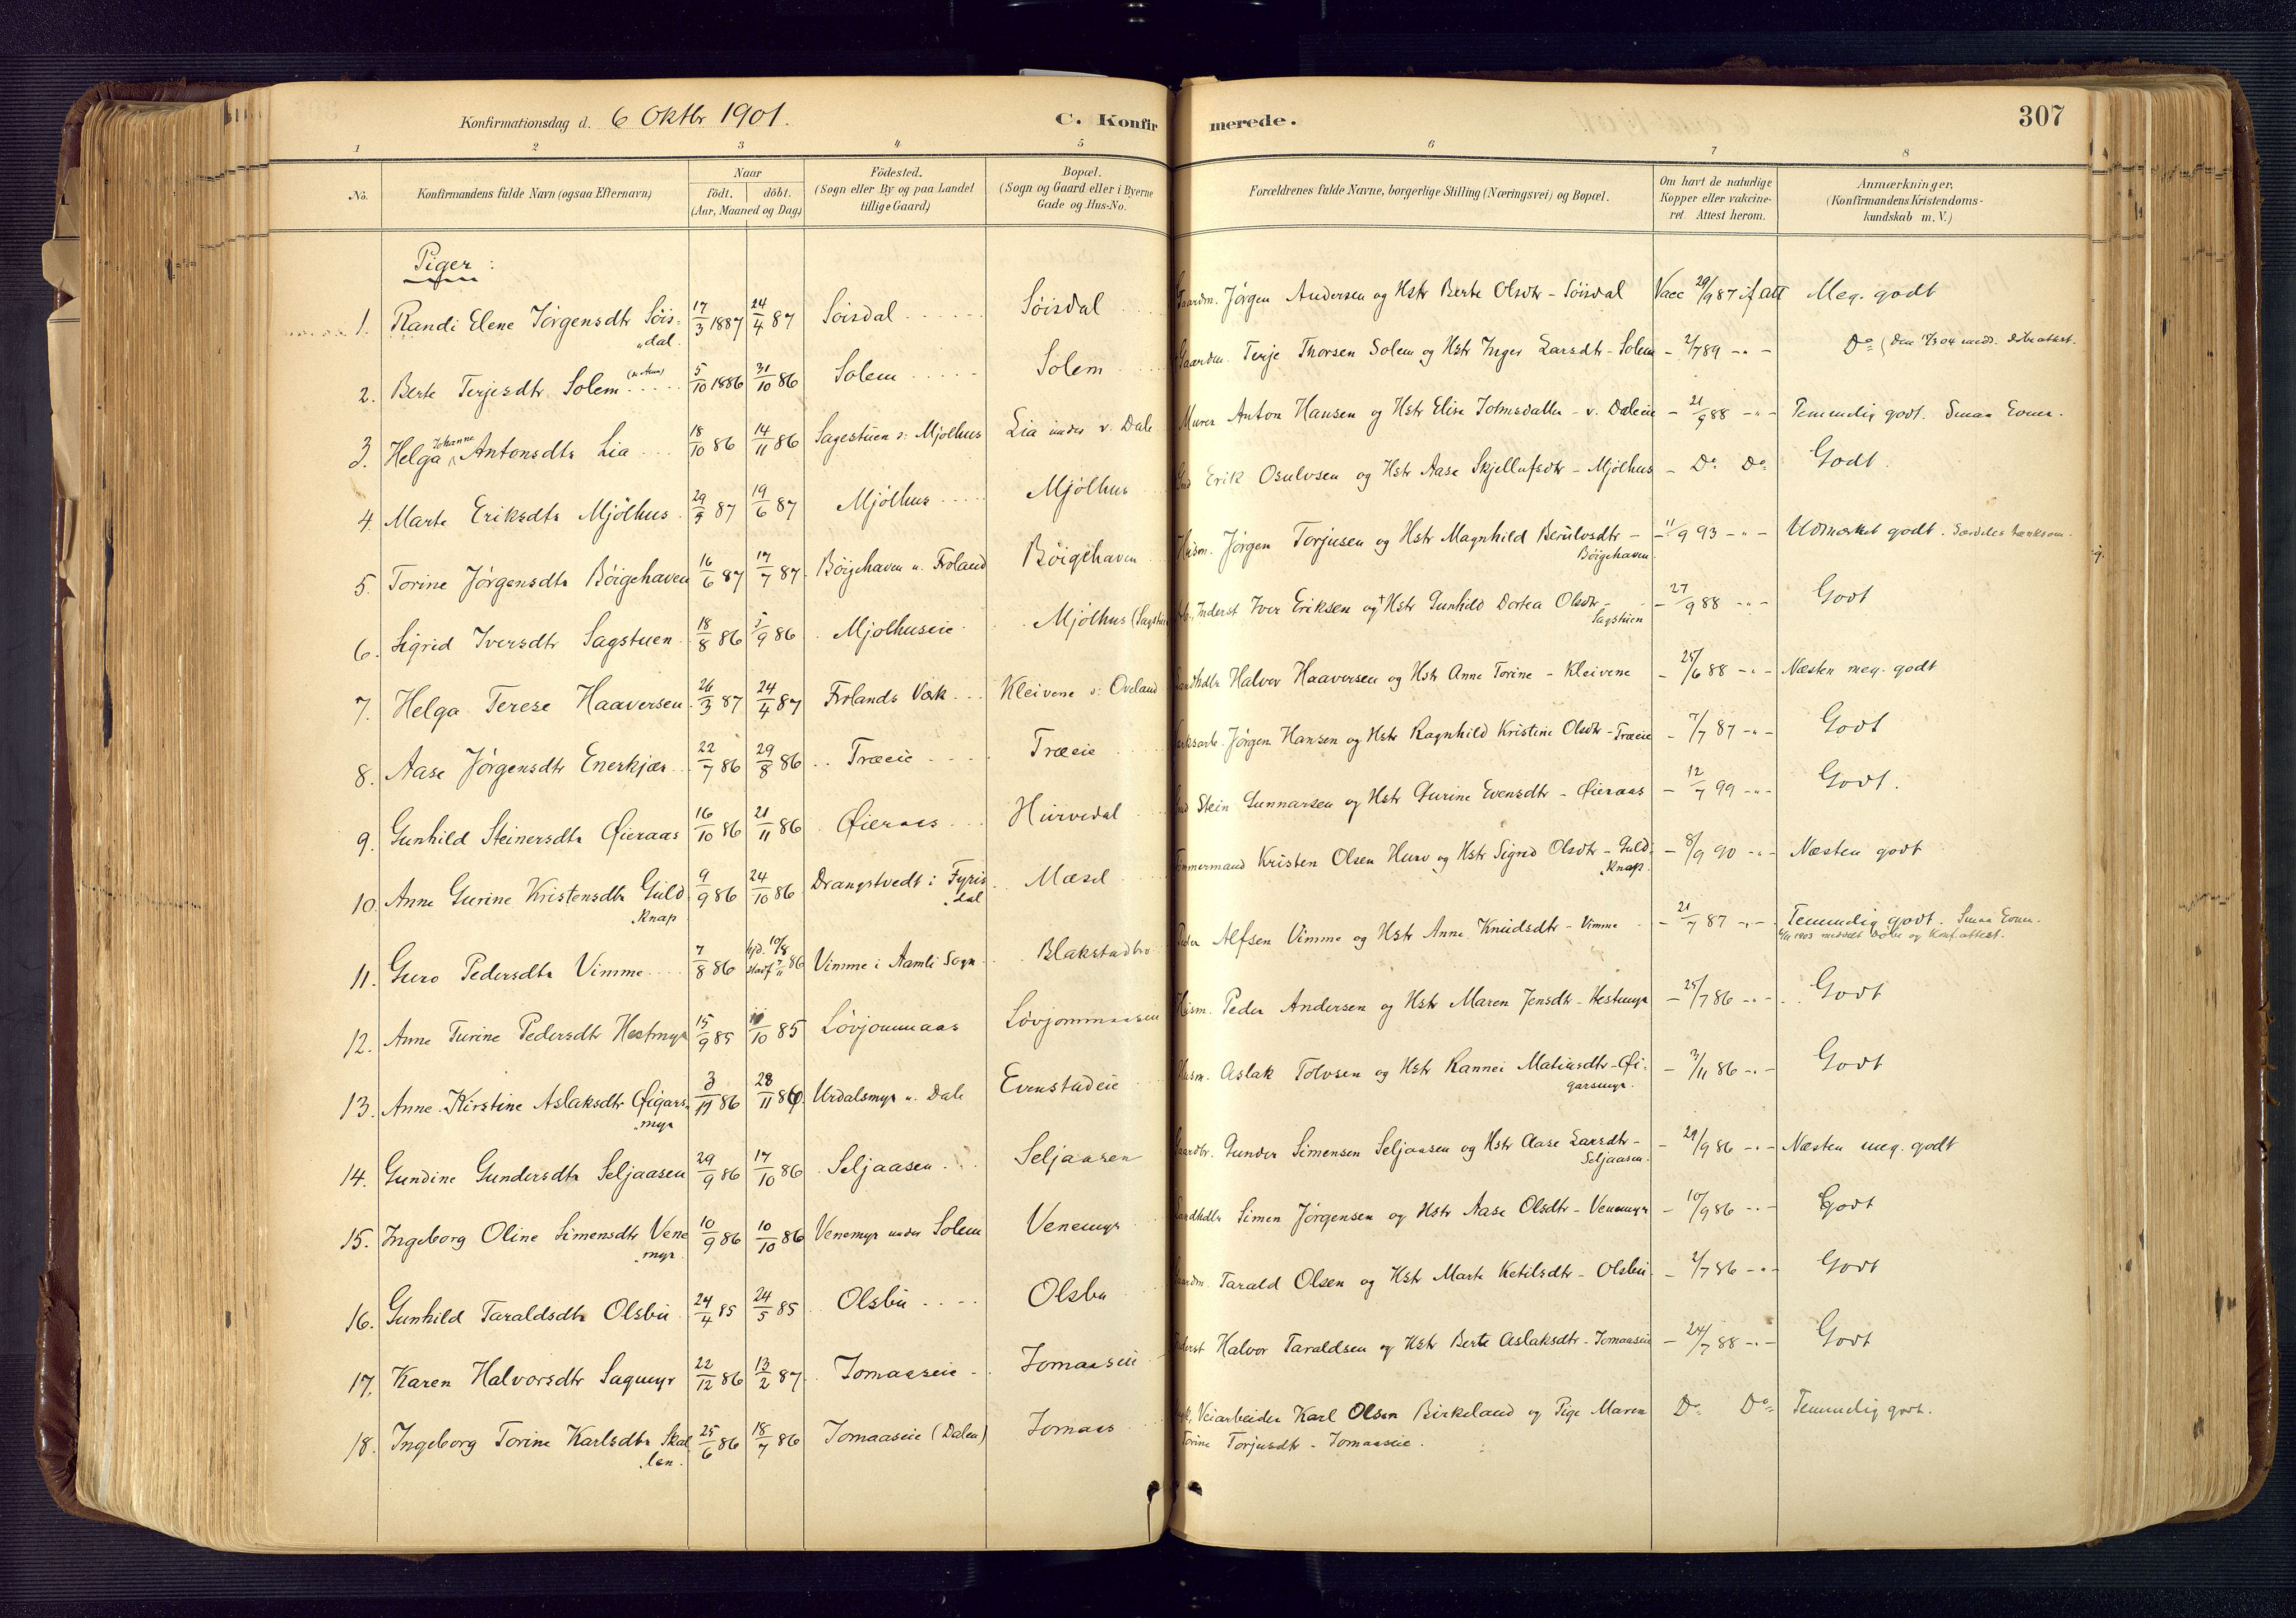 Konfirmationsdag d. 6 Oktbr 1901. C. Konfirmerede. 307
1 2 3 4 5 6 7 8
No. Konfirmandens fulde Navn (ogsaa Efternavn) Naar födt. döbt. (Aar, Maaned og Dag) Födested. (Sogn eller By og paa Landet tillige Gaard) Bopæl. (Sogn og Gaard eller i Byerne Gade og Hus-No. Forældrenes fulde Navne, borgerlige Stilling (Næringsvei) og Bopæl. Om havt de naturlige Kopper eller vakcineret. Attest herom. Anmærkninger. (Konfirmandens Kristendomskundskab m. V.)
Piger:
1. Randi Elene Jörgensdtr Söis- 17/3 1887 24/4 87 Söisdal Söisdal Gaardm. Jørgen Andersen og Hstr Berte Olsdtr - Söisdal Vacc 29/9 87 if att Meg. godt
dal.
2. Berte Terjesdtr Solem 5/10 1886 31/10 86 Solem Solem Gaardm. Terje Thorsen Solem og Hstr Inger Larsdtr - Solem - 2/7 89 -"- Do
3. Helga Johanne Antonsdtr Lia 18/10 86 14/11 86 Sagestuen v: Mjölhus Lia under v. Dale Murer Anton Hansen og Hstr Elise - v. Daleeie - 21/9 88 -"- Temmelig godt. Smaa Evner.
4. Marte Eriksdtr Mjölhus 29/5 87 19/6 87 Mjölhus Mjölhus Erik Osulvsen og Hstr Aase Skjellufsdtr - Mjölhus - Do Do Godt.
5. Torine Jørgensdtr Böigehaven 16/6 87 17/7 87 Böigehaven u. Froland Böigehaven Husm. Jørgen Torjusen og Hstr Magnhild Berulvsdtr - 11/9 93 -"- Udmærket godt. Særdeles tænksom.
Böigehaven
6. Sigrid Iversdtr Sagstuen 18/8 86 5/9 86 Mjölhuseie Mjölhus (Sagstuen Inderst Iver Eriksen og † Hstr Gunhild Dortea Olsdtr - 27/9 88 -"- Godt
Sagstuen
7. Helga Terese Haaversen 26/3 87 24/4 87 Frolands Værk Kleivene v: Oveland Landhdlr Halvor Haaversen og Hstr Anne Torine - Kleivene - 25/6 88 -"- Næsten meg. godt
8. Aase Jørgensdtr Enerkjær 22/7 86 29/8 86 Træeie Træeie Verksarb. Jørgen Hansen og Hstr Ragnhild Kristine Olsdtr - Træeie - 7/7 87 -"- Godt
9. Gunhild Steinersdtr Øieraas 16/10 86 21/11 86 Øieraas Hurvedal Stein Gunnarsen og Hstr Gurine Evensdtr - Øieraas - 12/7 99 -"- Godt.
10. Anne Gurine Kristensdtr Guld 9/9 86 24/10 86 Drangstvedt i Fyris Mæsel Tømmermand Kristen Olsen Hurv og Hstr Sigred Olsdtr - Guld - 8/9 90 -"- Næsten godt
knap dal knap.
11. Guro Pedersdtr Vimme 7/8 86 hjd. 10/8 86 Vimme i Aamli Sogn Blakstadbro Peder Alfsen Vimme og Hstr Anne Knudsdtr - Vimme - 21/7 87 -"- Temmelig godt. Smaa Evner.
1903 meddelt Döbe og Konf.attest.
12. Anne Turine Pedersdtr Hestmyr 15/9 85 10/10 85 Lövjommaas Lövjommaasen Husm. Peder Andersen og Hstr Maren Jensdtr - Hestmyr - 25/7 86 -"- Godt
13. Anne Kirstine Aslaksdtr Øigars 3/11 86 28/11 86 Urdalsmyr u. Dale Evenstadeie Husm. Aslak Tolvsen og Hstr Rannei Matiasdtr - Øi- 3/11 86 -"- Godt
myr garsmyr.
14. Gundine Gundersdtr Seljaasen 29/9 86 17/10 86 Seljaasen Seljaasen Gaardbr. Gunder Simensen Seljaasen og Hstr Aase Larsdtr - 29/9 86 -"- Næsten meg. godt
Seljaasen.
15. Ingeborg Oline Simensdtr Vene 10/9 86 10/10 86 Venemyr under Solem Venemyr Landhdlr Simen Jørgensen og Hstr Aase Olsdtr - Venemyr - 10/9 86 -"- Godt
myr.
16. Gunhild Taraldsdtr Olsbu 24/4 85 24/5 85 Olsbu Olsbu Gaardm. Tarald Olsen og Hstr Marte Ketilsdtr - Olsbu - 2/7 86 -"- Godt
17. Karen Halvorsdtr Sagmyr 22/12 86 13/2 87 Jomaaseie Jomaaseie Inderst Halvor Taraldsen og Hstr Berte Aslaksdtr - Jomaaseie - 24/7 88 -"- Godt
18. Ingeborg Torine Karlsdtr Skal 25/6 86 18/7 86 Jomaaseie (Dalen) Jomaas Veiarbeider Karl Olsen Birkeland og Pige Maren Do Do Temmelig godt.
len. Torine Torjusdtr - Jomaaseie.